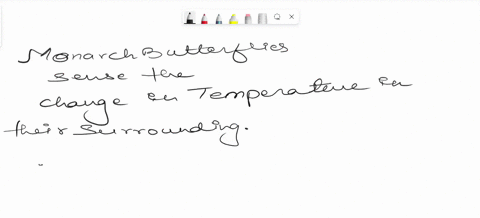 Monarch Butterflies
sense the
change in Temperature in
their surrounding.